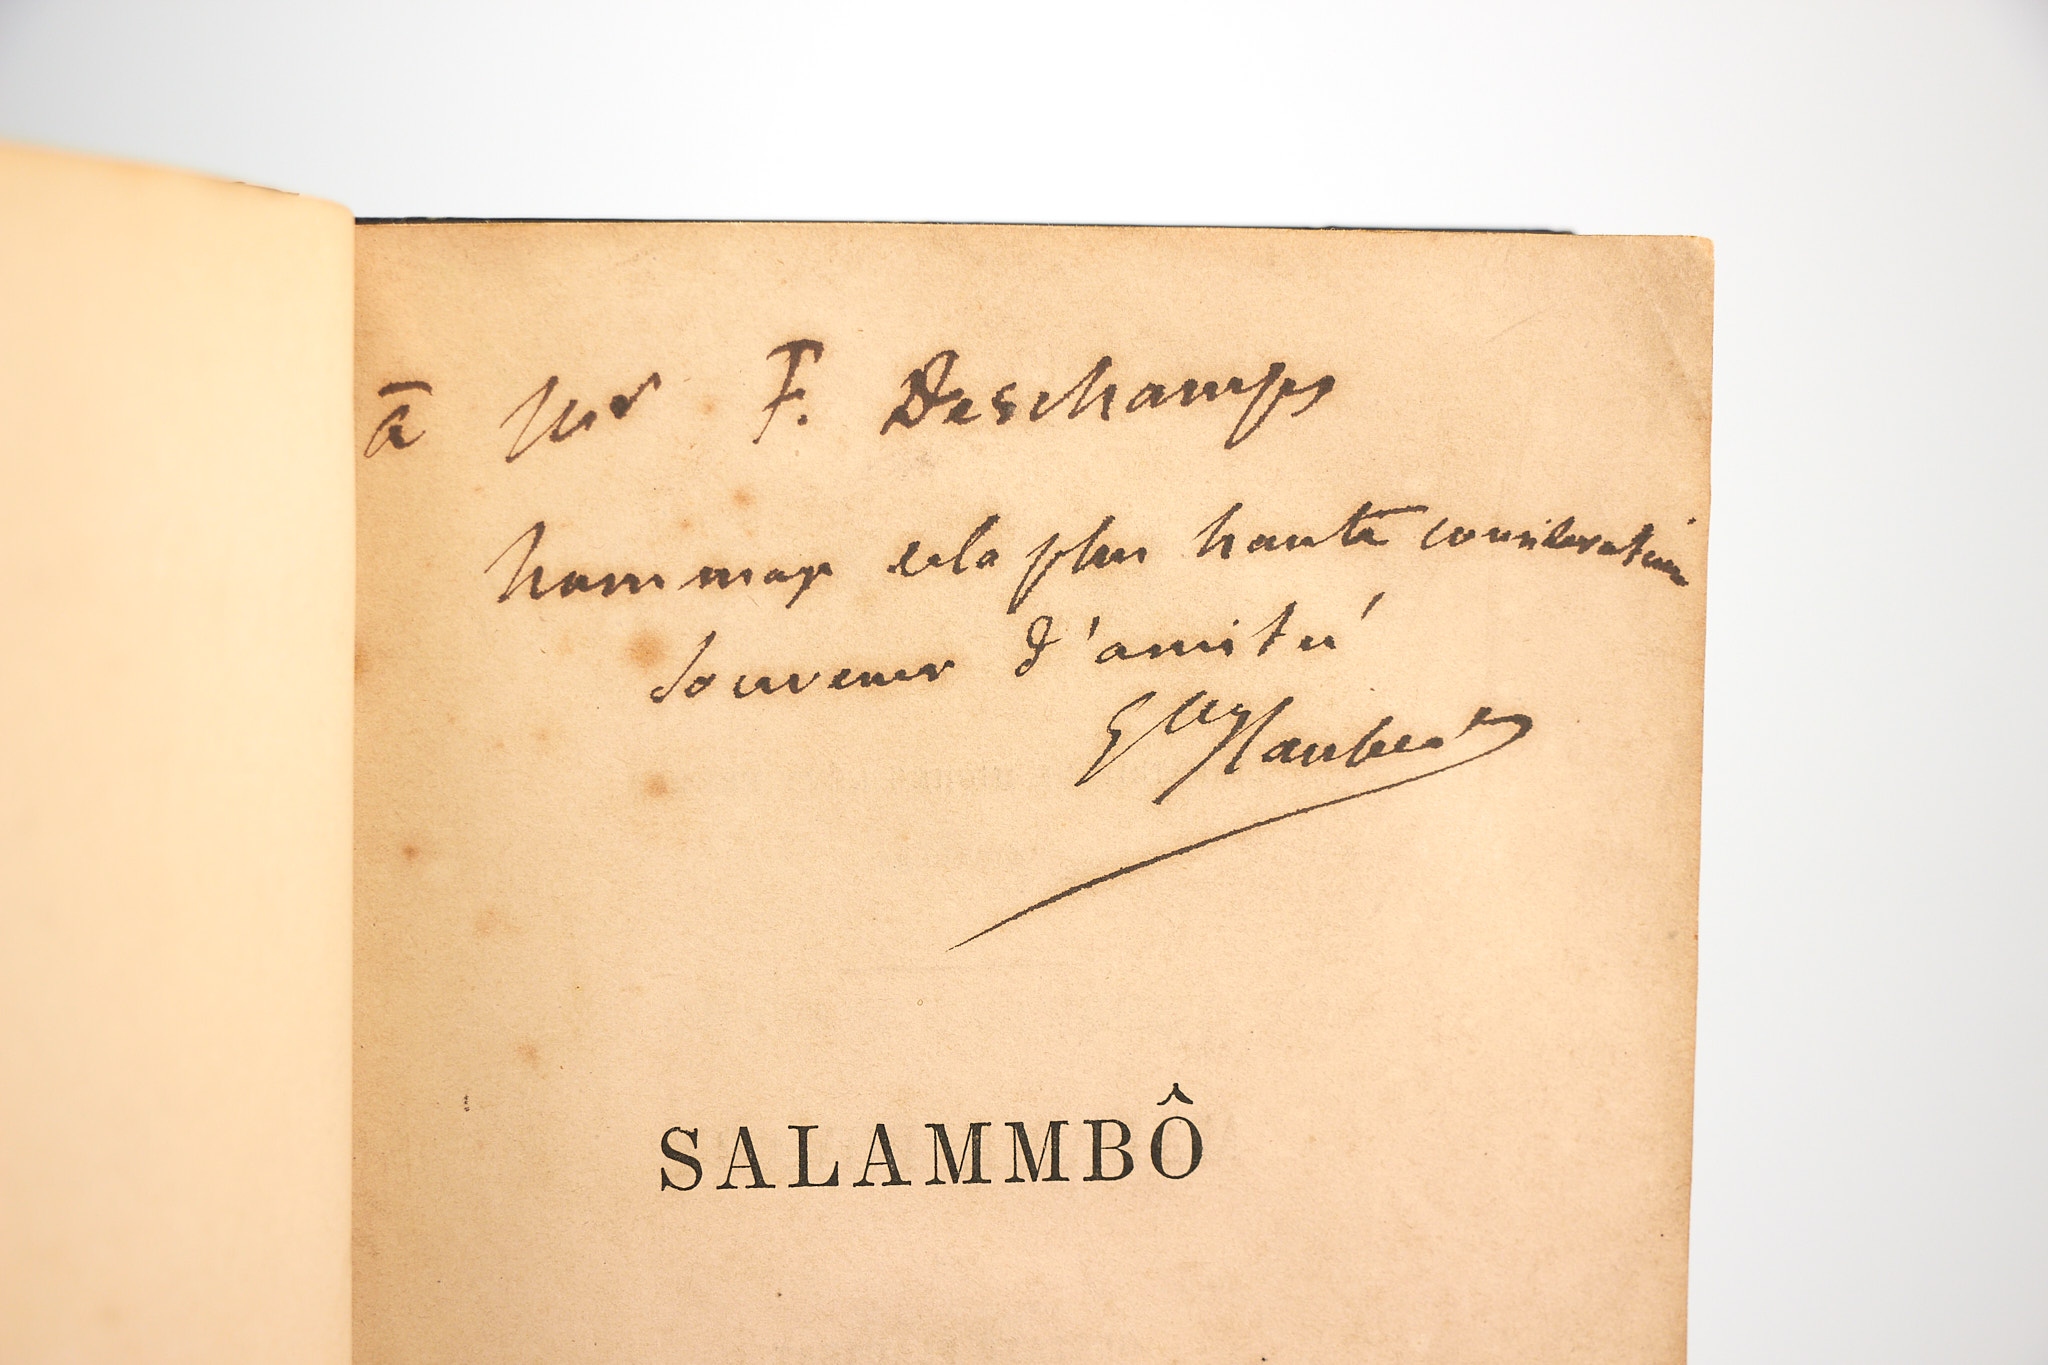 à Mr F. Deschamps
hommage de la plus haute consideration
Souvenir d'amitié
Gve Flaubert
SALAMMBÔ